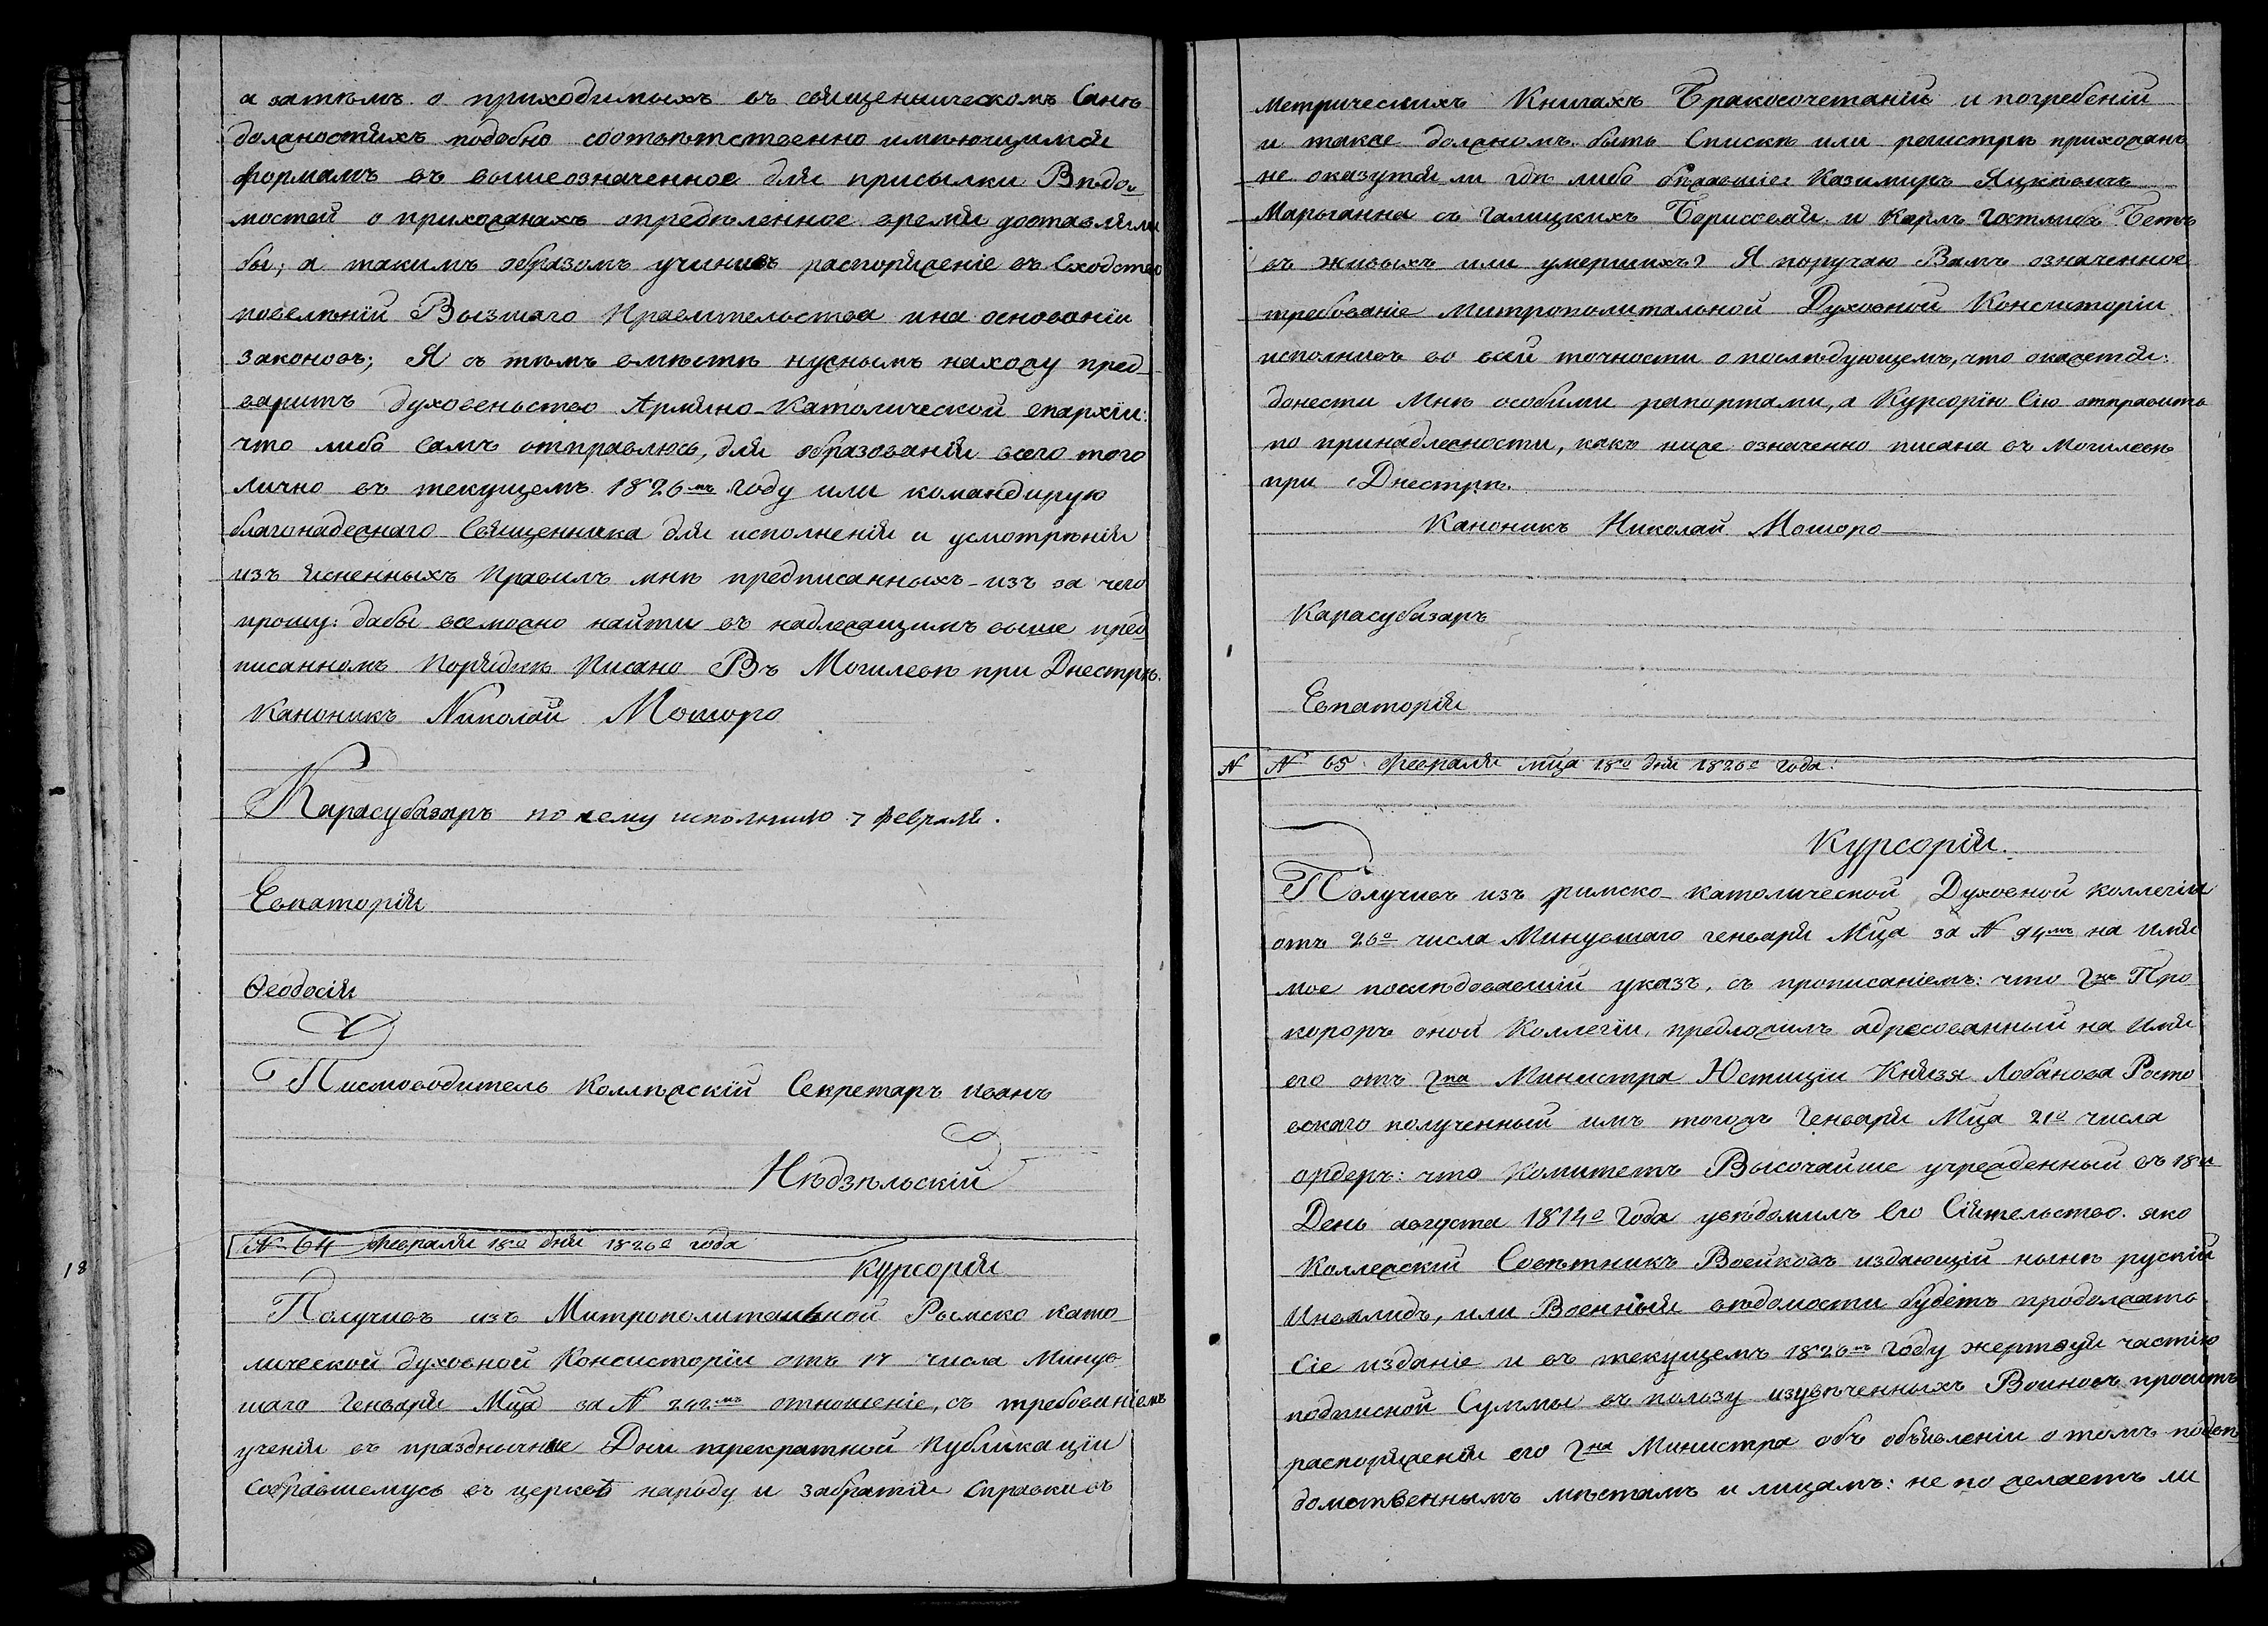 а затѣмъ о приходимыхъ въ священническомъ Санѣ
должностяхъ подобно соотвѣтственно имѣющимся
формамъ въ вышеозначенное для присылки Вѣдо-
мостей о прихожанахъ опредѣленное время доставляли
бы; а такимъ образомъ учинивъ распоряженіе въ Сходство
повелѣній Высшаго Правительства и на основаніи
законовъ; Я съ тѣмъ вмѣстѣ нужнымъ нахожу пред-
варитъ духовеньство Армяно-Католической епархіи:
что либо Самъ отправлюсь, для образованія всего того
лично въ текущемъ 1826мъ году или командирую
благонадежнаго Священника для исполненія и усмотрѣнія
изъ ясненныхъ Правилъ мнѣ предписанныхъ-изъ за чего
прошу: дабы все можно найти въ надлежащимъ выше пред
писанномъ Порядкѣ Писано Въ Могилевѣ при Днестрѣ.
Каноникъ Николай Мошоро
Карасубазаръ по чему исполнилъ 7 февраля.
Евпаторія
Ѳеодосія
Писмоводитель Коллѣжскій Секретаръ Иванъ
Нѣдзѣльскій
№ 64 февраля 18го дня 1826го года
Курсорія
18
Получивъ изъ Митрополитальной Рымско като-
лической духовной Консисторіи отъ 17 числа Минув
шаго Генваря Мца за № 242мъ отношеніе, съ требованіемъ
ученія въ праздничные Дни трекратной Публикаціи
собравшемусь въ церквѣ народу и забратія Справки въ
Метрическихъ Книгахъ Бракосочетаній и погребеній
и также должномъ быть Спискѣ или регистрѣ прихожанъ
не окажутся ли гдѣ либо бѣжавшіе: Казимиръ Яцкѣвичъ
Марыанна съ Галицкихъ Борисовая и Карлъ Готлибъ Бетъ
въ живыхъ или умершихъ? Я поручаю Вамъ означенное
требованіе Митрополитальной Духовной Консисторіи
исполнивъ во всей точности о послѣдующемъ, что окажется:
донести Мнѣ особими репортами, а Курсорію Сію отправить
по принадлежности, какъ ниже означенно писана въ Могилевѣ
при Днестрѣ.
Каноникъ Николай Мошоро
Карасубазаръ
Евпаторія
№ № 65 февраля мца 18го дня 1826го года:
Курсорія.
Получивъ изъ римско-католической Духовной коллегіи
отъ 26го числа Минувшаго генваря Мца за № 94мъ на имя
мое послѣдовавшій указъ, съ прописаніемъ: что Гнъ Про
короръ оной Коллегіи, предложилъ адресованный на имя
его отъ Гна Министра Юстиціи Князя Лобанова Росто
вскаго полученный имъ тогожъ Генваря Мца 21го числа
ордеръ: что Комитетъ Высочайше учрежденный въ 18й
День августа 1814го Года увѣдомилъ Его Сіятельство. яко
Коллежскій Совѣтникъ Воейковъ издающій нынѣ рускій
Инвалидъ, или Военныя вѣдомости будетъ продолжать
Сіе изданіе и въ текущемъ 1826мъ Году жертвуя частію
подписной Суммы въ пользу изувѣченныхъ Воиновъ просить
распоряженія его Гна Министра объ объявленіи о томъ подвѣ
домственнымъ мѣстамъ и лицамъ: не по желаетъ ли